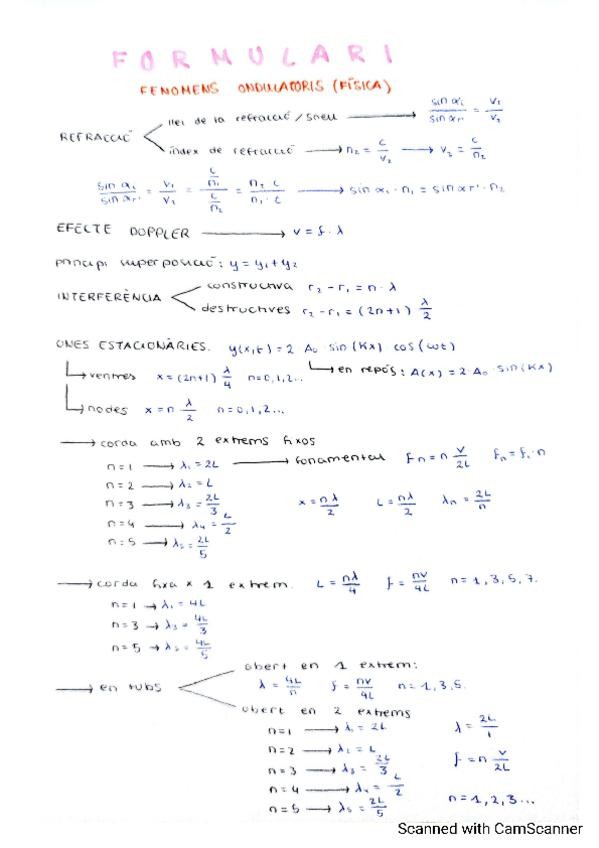 FORMULARI
FENOMENS ONDULATORIS (FÍSICA)
REFRACCIÓ
llei de la refracció / Snell ⟶ sin αi / sin αr = v1 / v2
índex de refracció ⟶ n2 = c / v2 ⟶ v2 = c / n2
sin αi / sin αr = v1 / v2 = (c / n1) / (c / n2) = n2 · c / n1 · c ⟶ sin αi · n1 = sin αr · n2
EFECTE DOPPLER ⟶ v = f · λ
principi superposició: y = y1 + y2
INTERFERÈNCIA
constructiva r2 - r1 = n · λ
destructives r2 - r1 = (2n+1) λ/2
ONES ESTACIONÀRIES. y(x,t) = 2 A0 sin (Kx) cos (ωt)
ventres x = (2n+1) λ/4 n=0,1,2..
en repòs: A(x) = 2 A0 · sin (Kx)
nodes x = n λ/2 n=0,1,2...
⟶ corda amb 2 extrems fixos
n=1 ⟶ λ1 = 2L ⟶ fonamental fn = n v/2L fn = f1 · n
n=2 ⟶ λ2 = L
n=3 ⟶ λ3 = 2L/3 x = nλ/2 L = nλ/2 λn = 2L/n
n=4 ⟶ λ4 = L/2
n=5 ⟶ λ5 = 2L/5
⟶ corda fixa x 1 extrem. L = nλ/4 f = nv/4L n = 1, 3, 5, 7.
n=1 → λ1 = 4L
n=3 → λ3 = 4L/3
n=5 → λ5 = 4L/5
⟶ en tubs
obert en 1 extrem:
λ = 4L/n f = nv/4L n=1,3,5.
obert en 2 extrems
n=1 ⟶ λ1 = 2L λ = 2L/1
n=2 ⟶ λ2 = L
n=3 ⟶ λ3 = 2L/3 f = n v/2L
n=4 ⟶ λ4 = L/2
n=5 ⟶ λ5 = 2L/5 n=1,2,3...
Scanned with CamScanner